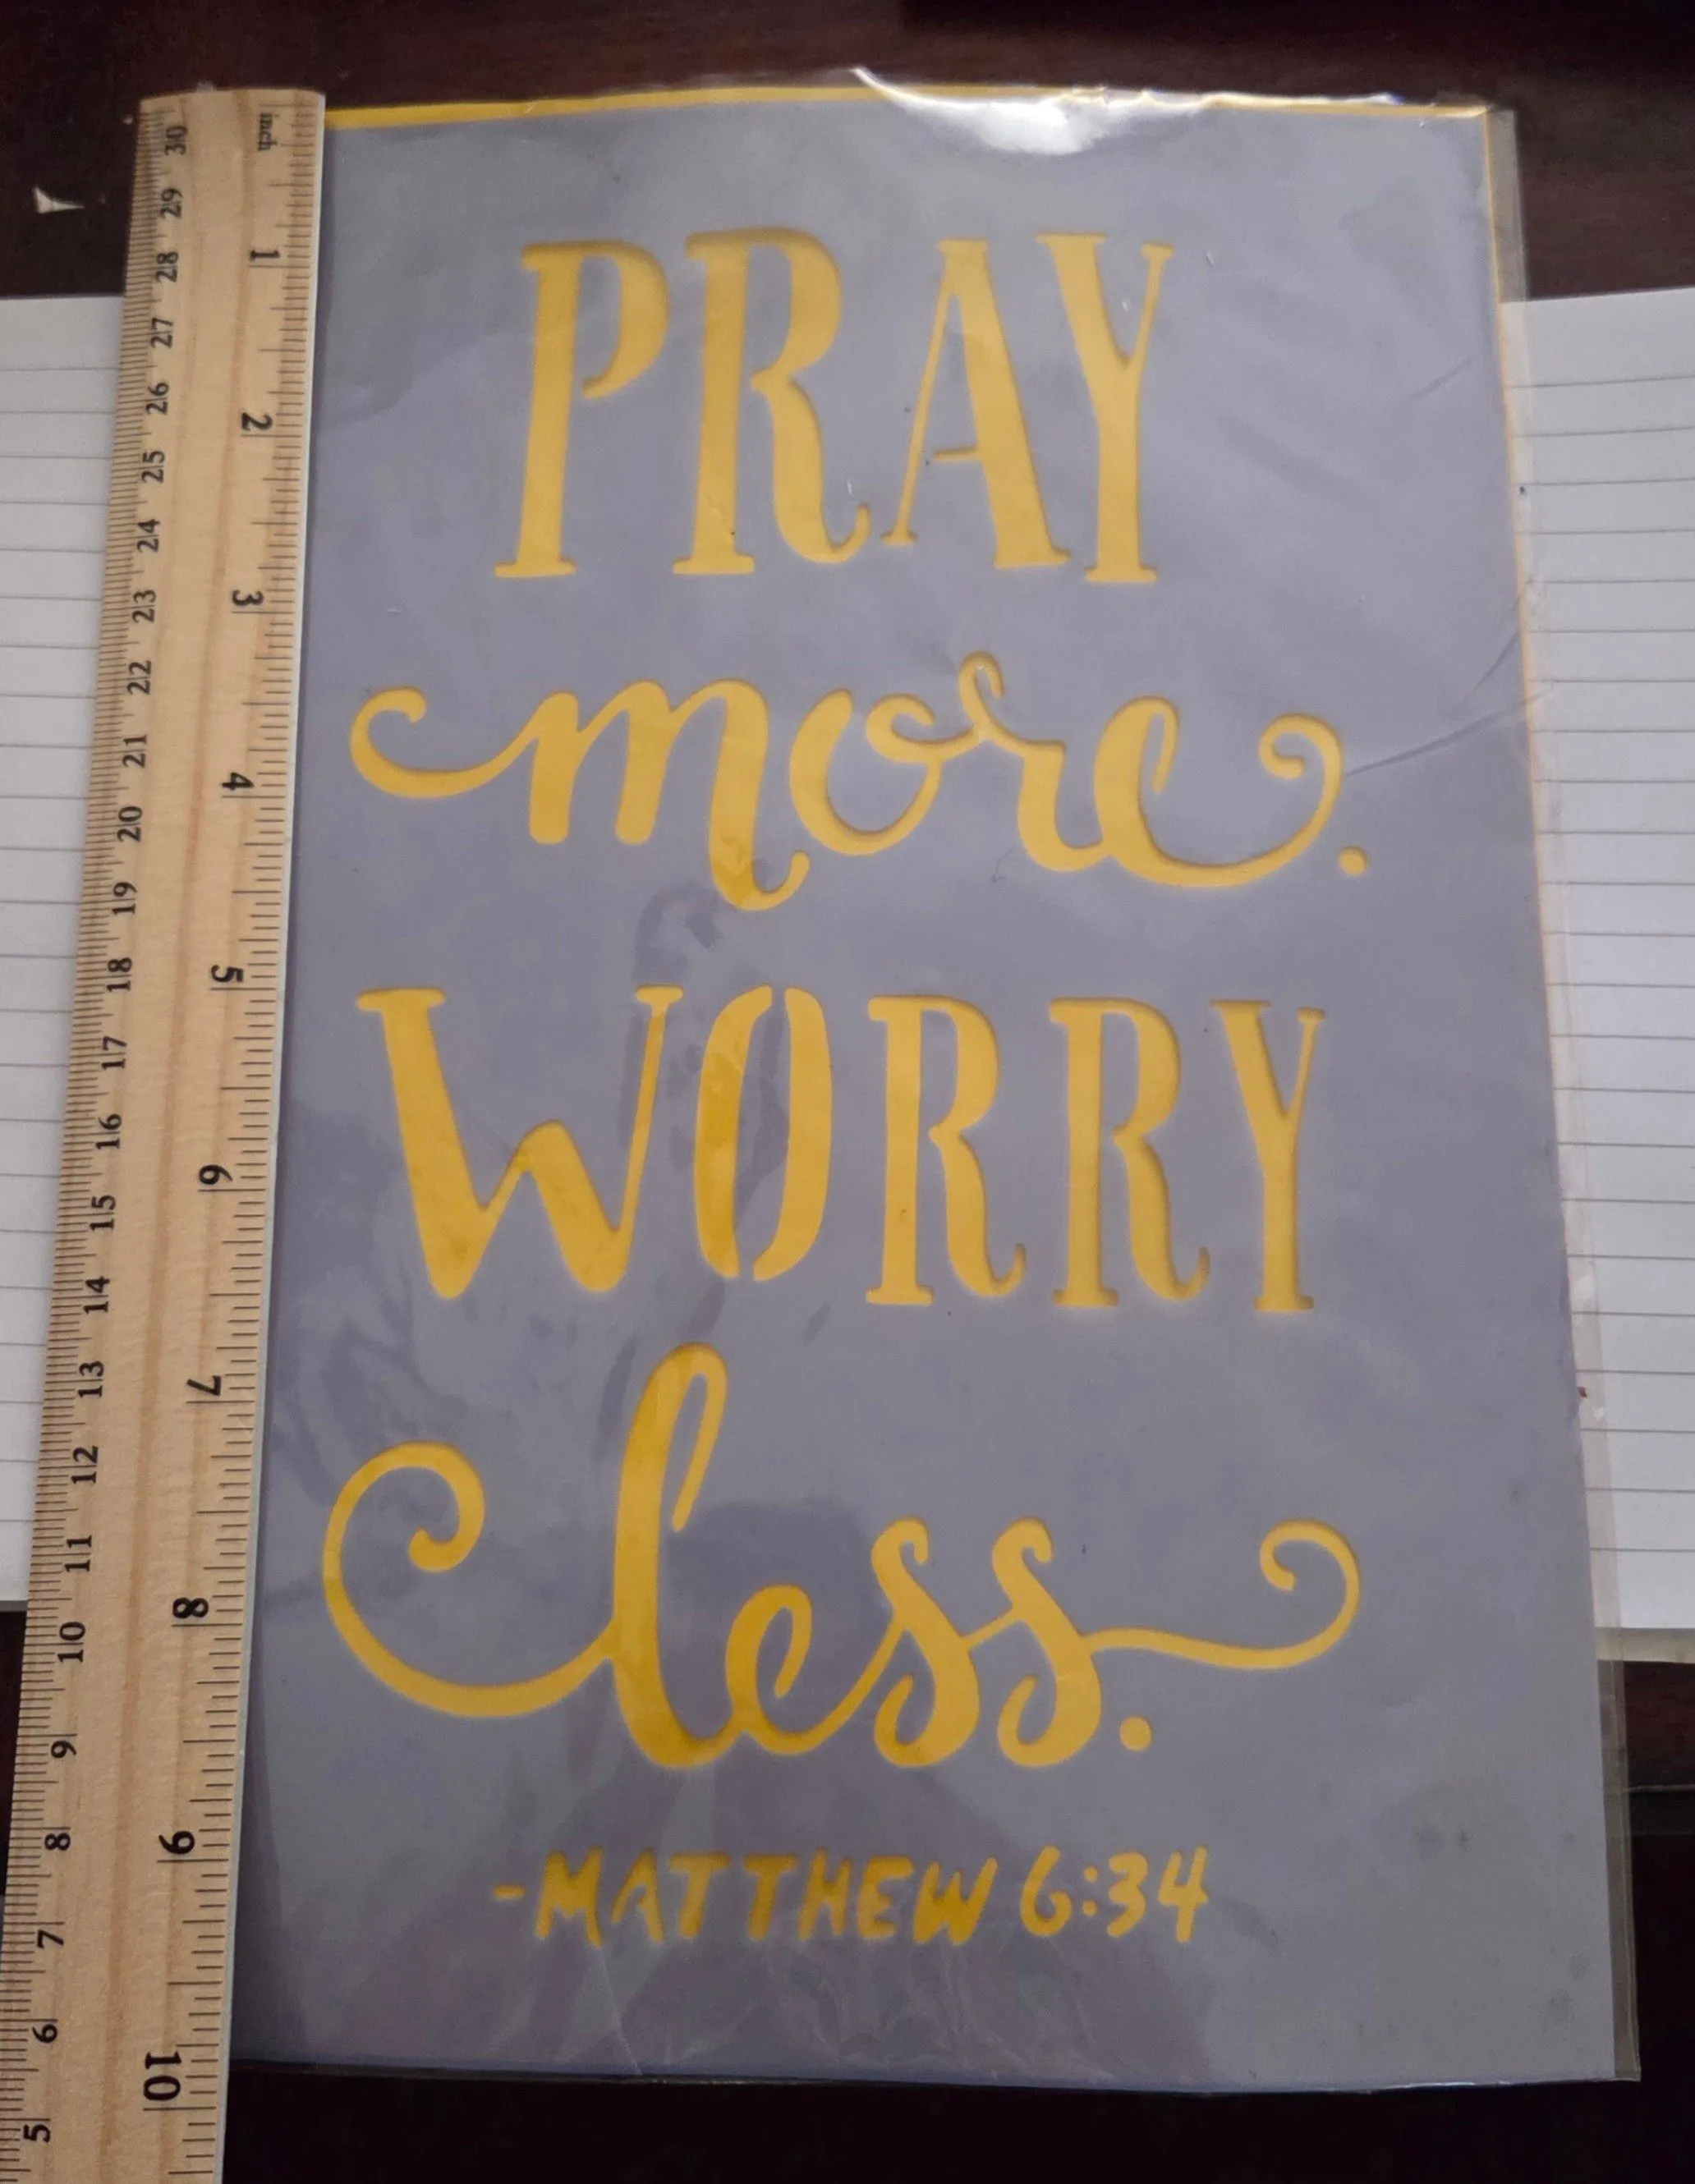 PRAY
more.
WORRY
less.
-MATTHEW 6:34
inch
1
2
3
4
5
6
7
8
9
10
30
29
28
27
26
25
24
23
22
21
20
19
18
17
16
15
14
13
12
11
10
9
8
7
6
5